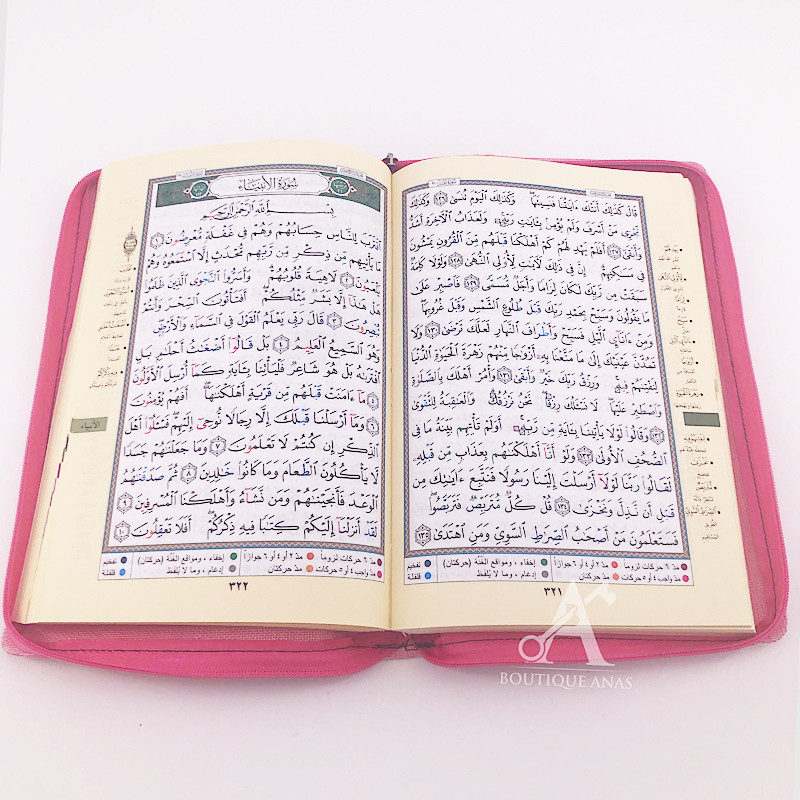 قَالَ كَذَٰلِكَ أَتَتْكَ ءَايَٰتُنَا فَنَسِيتَهَا ۖ وَكَذَٰلِكَ ٱلْيَوْمَ تُنسَىٰ ١٢٦ وَكَذَٰلِكَ
نَجْزِى مَنْ أَسْرَفَ وَلَمْ يُؤْمِنۢ بِـَٔايَٰتِ رَبِّهِۦ ۚ وَلَعَذَابُ ٱلْـَٔاخِرَةِ أَشَدُّ
وَأَبْقَىٰٓ ١٢٧ أَفَلَمْ يَهْدِ لَهُمْ كَمْ أَهْلَكْنَا قَبْلَهُم مِّنَ ٱلْقُرُونِ يَمْشُونَ
فِى مَسَٰكِنِهِمْ ۗ إِنَّ فِى ذَٰلِكَ لَـَٔايَٰتٍ لِّأُو۟لِى ٱلنُّهَىٰ ١٢٨ وَلَوْلَا كَلِمَةٌ
سَبَقَتْ مِن رَّبِّكَ لَكَانَ لِزَامًا وَأَجَلٌ مُّسَمًّى ١٢٩ فَٱصْبِرْ عَلَىٰ
مَا يَقُولُونَ وَسَبِّحْ بِحَمْدِ رَبِّكَ قَبْلَ طُلُوعِ ٱلشَّمْسِ وَقَبْلَ غُرُوبِهَا ۖ
وَمِنْ ءَانَآئِ ٱلَّيْلِ فَسَبِّحْ وَأَطْرَافَ ٱلنَّهَارِ لَعَلَّكَ تَرْضَىٰ ١٣٠ وَلَا
تَمُدَّنَّ عَيْنَيْكَ إِلَىٰ مَا مَتَّعْنَا بِهِۦٓ أَزْوَٰجًا مِّنْهُمْ زَهْرَةَ ٱلْحَيَوٰةِ ٱلدُّنْيَا
لِنَفْتِنَهُمْ فِيهِ ۚ وَرِزْقُ رَبِّكَ خَيْرٌ وَأَبْقَىٰ ١٣١ وَأْمُرْ أَهْلَكَ بِٱلصَّلَوٰةِ
وَٱصْطَبِرْ عَلَيْهَا ۖ لَا نَسْـَٔلُكَ رِزْقًا ۖ نَّحْنُ نَرْزُقُكَ ۗ وَٱلْعَٰقِبَةُ لِلتَّقْوَىٰ
١٣٢ وَقَالُوا۟ لَوْلَا يَأْتِينَا بِـَٔايَةٍ مِّن رَّبِّهِۦٓ ۚ أَوَلَمْ تَأْتِهِم بَيِّنَةُ مَا فِى
ٱلصُّحُفِ ٱلْأُولَىٰ ١٣٣ وَلَوْ أَنَّآ أَهْلَكْنَٰهُم بِعَذَابٍ مِّن قَبْلِهِۦ
لَقَالُوا۟ رَبَّنَا لَوْلَآ أَرْسَلْتَ إِلَيْنَا رَسُولًا فَنَتَّبِعَ ءَايَٰتِكَ مِن
قَبْلِ أَن نَّذِلَّ وَنَخْزَىٰ ١٣٤ قُلْ كُلٌّ مُّتَرَبِّصٌ فَتَرَبَّصُوا۟ ۖ
فَسَتَعْلَمُونَ مَنْ أَصْحَٰبُ ٱلصِّرَٰطِ ٱلسَّوِىِّ وَمَنِ ٱهْتَدَىٰ ١٣٥
مدّ ٦ حركات لزوماً مدّ ٢ أو ٤ أو ٦ جوازاً إخفاء، ومواقع الغُنَّة (حركتان) تفخيم
مدّ واجب ٤ أو ٥ حركات مدّ حركتان إدغام، وما لا يُلفَظ قلقلة
٣٢١
سُورَةُ الأَنْبِيَاءِ
بِسْمِ ٱللَّهِ ٱلرَّحْمَٰنِ ٱلرَّحِيمِ
ٱقْتَرَبَ لِلنَّاسِ حِسَابُهُمْ وَهُمْ فِى غَفْلَةٍ مُّعْرِضُونَ ١
مَا يَأْتِيهِم مِّن ذِكْرٍ مِّن رَّبِّهِم مُّحْدَثٍ إِلَّا ٱسْتَمَعُوهُ وَهُمْ
يَلْعَبُونَ ٢ لَاهِيَةً قُلُوبُهُمْ ۗ وَأَسَرُّوا۟ ٱلنَّجْوَى ٱلَّذِينَ ظَلَمُوا۟
هَلْ هَٰذَآ إِلَّا بَشَرٌ مِّثْلُكُمْ ۖ أَفَتَأْتُونَ ٱلسِّحْرَ وَأَنتُمْ
تُبْصِرُونَ ٣ قَالَ رَبِّى يَعْلَمُ ٱلْقَوْلَ فِى ٱلسَّمَآءِ وَٱلْأَرْضِ
وَهُوَ ٱلسَّمِيعُ ٱلْعَلِيمُ ٤ بَلْ قَالُوٓا۟ أَضْغَٰثُ أَحْلَٰمٍۭ بَلِ
ٱفْتَرَىٰهُ بَلْ هُوَ شَاعِرٌ فَلْيَأْتِنَا بِـَٔايَةٍ كَمَآ أُرْسِلَ ٱلْأَوَّلُونَ
٥ مَآ ءَامَنَتْ قَبْلَهُم مِّن قَرْيَةٍ أَهْلَكْنَٰهَآ ۖ أَفَهُمْ يُؤْمِنُونَ
٦ وَمَآ أَرْسَلْنَا قَبْلَكَ إِلَّا رِجَالًا نُّوحِىٓ إِلَيْهِمْ ۖ فَسْـَٔلُوٓا۟ أَهْلَ
ٱلذِّكْرِ إِن كُنتُمْ لَا تَعْلَمُونَ ٧ وَمَا جَعَلْنَٰهُمْ جَسَدًا
لَّا يَأْكُلُونَ ٱلطَّعَامَ وَمَا كَانُوا۟ خَٰلِدِينَ ٨ ثُمَّ صَدَقْنَٰهُمُ
ٱلْوَعْدَ فَأَنجَيْنَٰهُمْ وَمَن نَّشَآءُ وَأَهْلَكْنَا ٱلْمُسْرِفِينَ ٩
لَقَدْ أَنزَلْنَآ إِلَيْكُمْ كِتَٰبًا فِيهِ ذِكْرُكُمْ ۖ أَفَلَا تَعْقِلُونَ ١٠
مدّ ٦ حركات لزوماً مدّ ٢ أو ٤ أو ٦ جوازاً إخفاء، ومواقع الغُنَّة (حركتان) تفخيم
مدّ واجب ٤ أو ٥ حركات مدّ حركتان إدغام، وما لا يُلفَظ قلقلة
٣٢٢
الأنبياء
BOUTIQUE ANAS